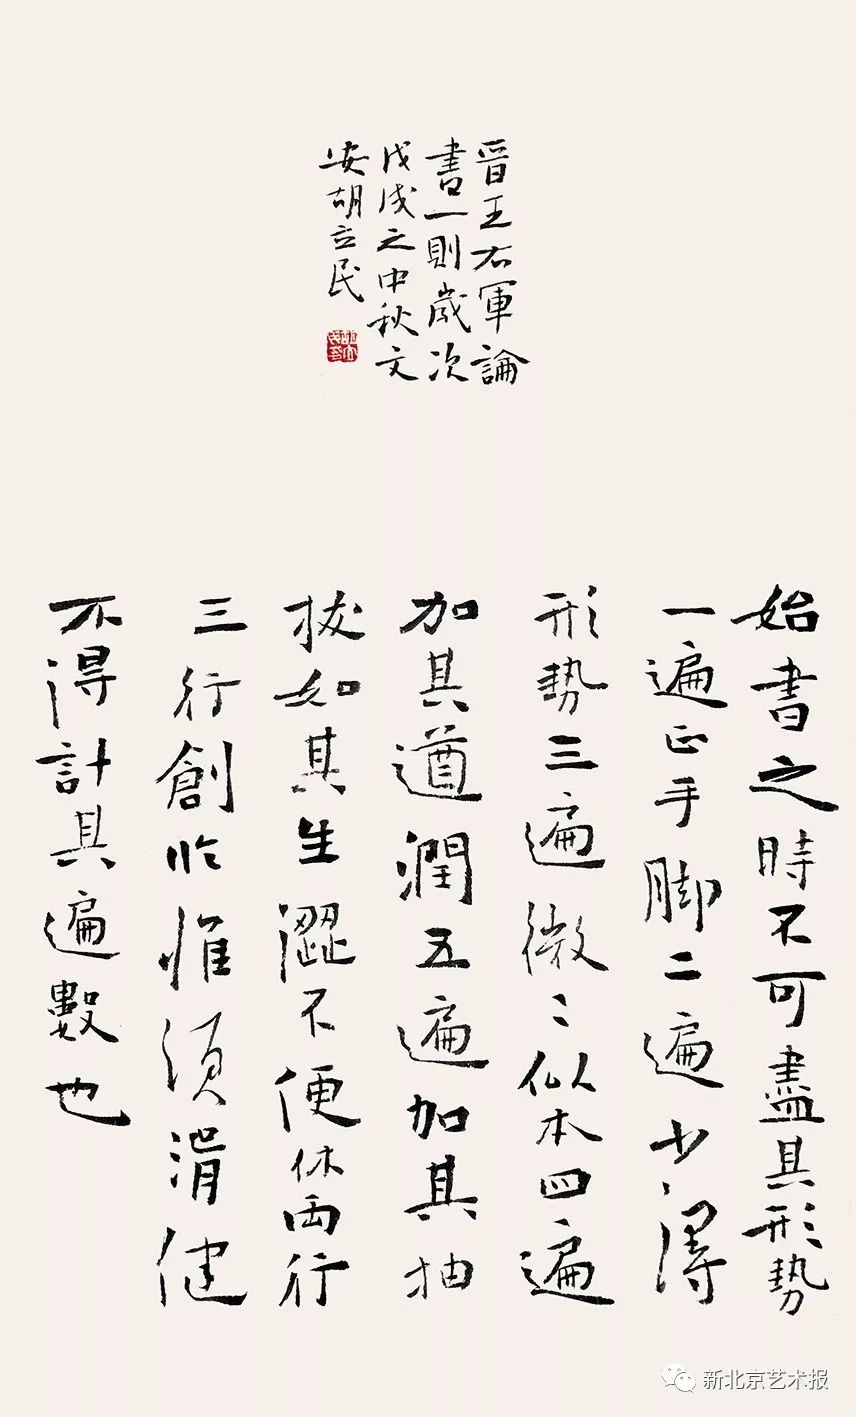 晉王右軍論
書一則歲次
戊戌之中秋文
安胡立民
始書之時不可盡其形勢
一遍正手脚二遍少得
形勢三遍微〻似本四遍
加其遒潤五遍加其抽
拔如其生澀不便休兩行
三行創臨惟須滑健
不得計其遍數也
新北京艺术报